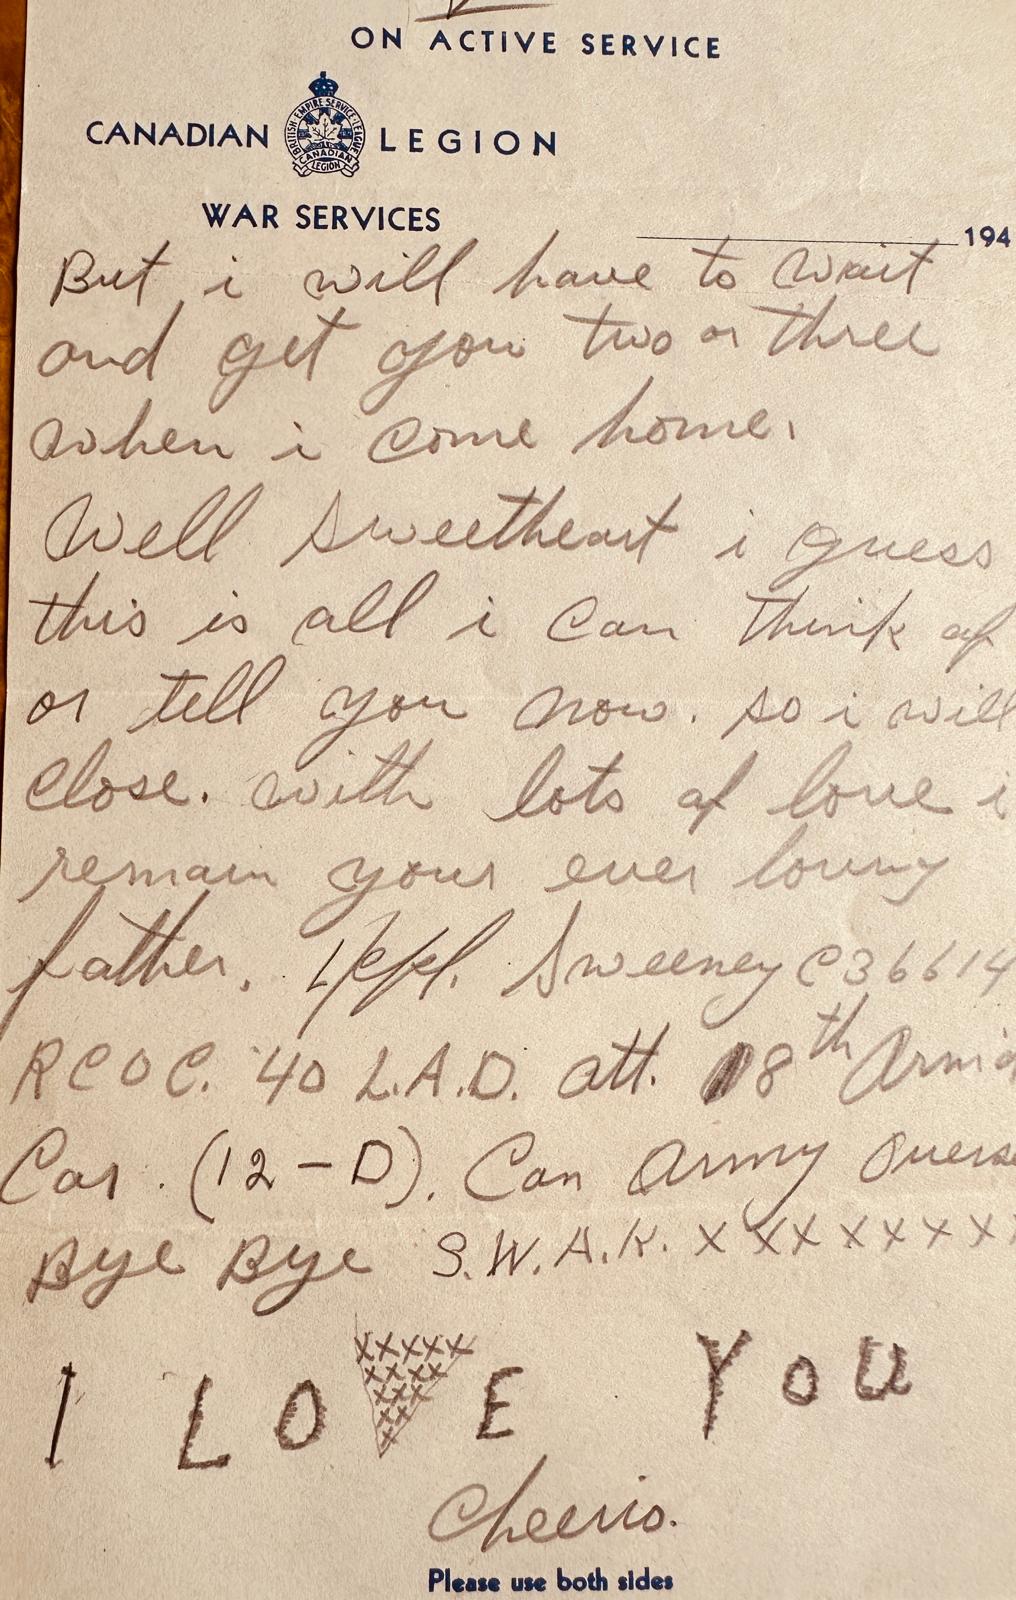 ON ACTIVE SERVICE
BRITISH EMPIRE SERVICE LEAGUE
CANADIAN LEGION
CANADIAN LEGION
WAR SERVICES 194
But i will have to wait
and get you two or three
when i come home.
Well sweetheart i guess
this is all i can think of
or tell you now. so i will
close. with lots of love i
remain your ever loving
father. L/Cpl. Sweeney C36614
RCOC. 40 L.A.D. att. 18th Armd
Car. (12-D). Can Army Overse
Bye Bye S.W.A.K. x x x x x x x x
I LOVE YOU
xxxxx
xxxx
xxx
xx
x
Cheerio.
Please use both sides